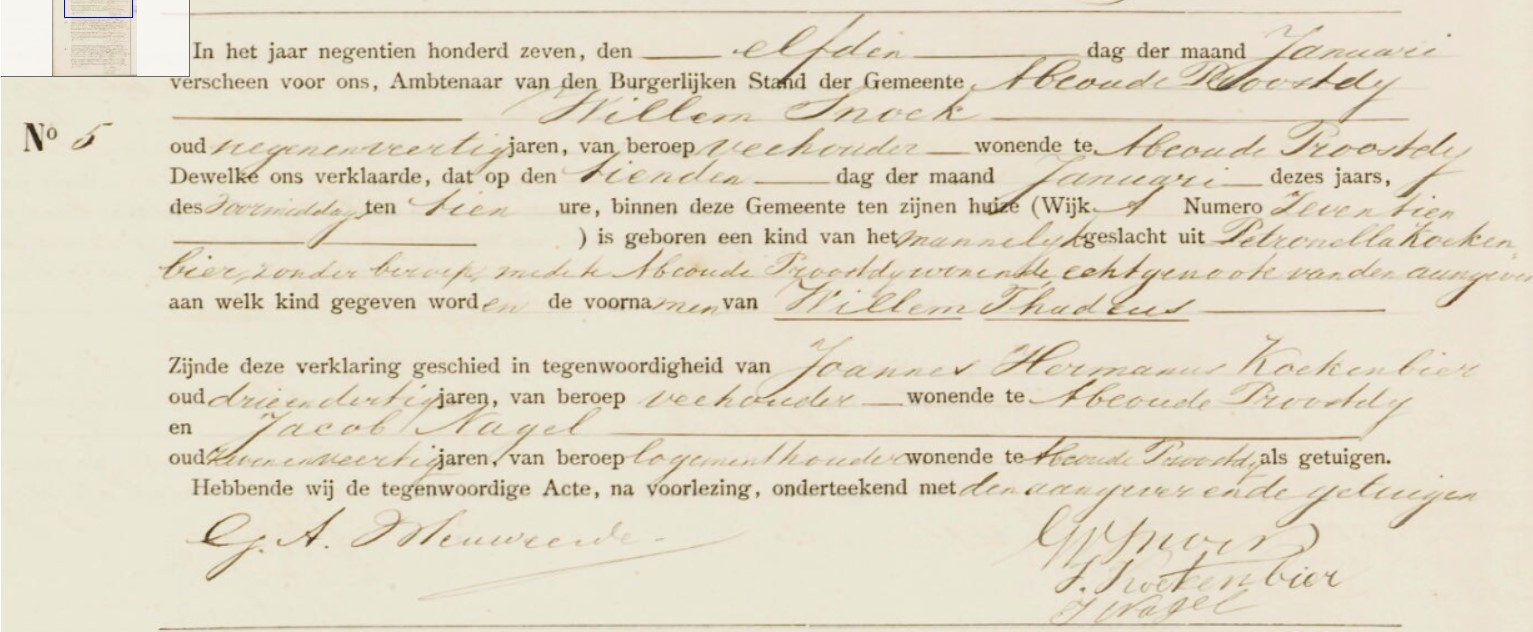 In het jaar negentien honderd zeven, den elfden dag der maand Januari
verscheen voor ons, Ambtenaar van den Burgerlijken Stand der Gemeente Abcoude Proostdy
Willem Snoek
No 5
oud negenenveertig jaren, van beroep veehouder wonende te Abcoude Proostdy
Dewelke ons verklaarde, dat op den tienden dag der maand Januari dezes jaars,
des voormiddags ten tien ure, binnen deze Gemeente ten zijnen huize (Wijk A Numero zeventien
) is geboren een kind van het mannelyk geslacht uit Petronella Koeken
bier, zonder beroep, mede te Abcoude Proostdy wonende, echtgenoote van den aangever
aan welk kind gegeven worden de voornamen van Willem Thadeus
Zijnde deze verklaring geschied in tegenwoordigheid van Joannes Hermanus Koekenbier
oud drieendertig jaren, van beroep veehouder wonende te Abcoude Proostdy
en Jacob Nagel
oud zevenenveertig jaren, van beroep logementhouder wonende te Abcoude Proostdy als getuigen.
Hebbende wij de tegenwoordige Acte, na voorlezing, onderteekend met den aangever en de getuigen
G. A.
W Snoek
J. Koekenbier
J Nagel